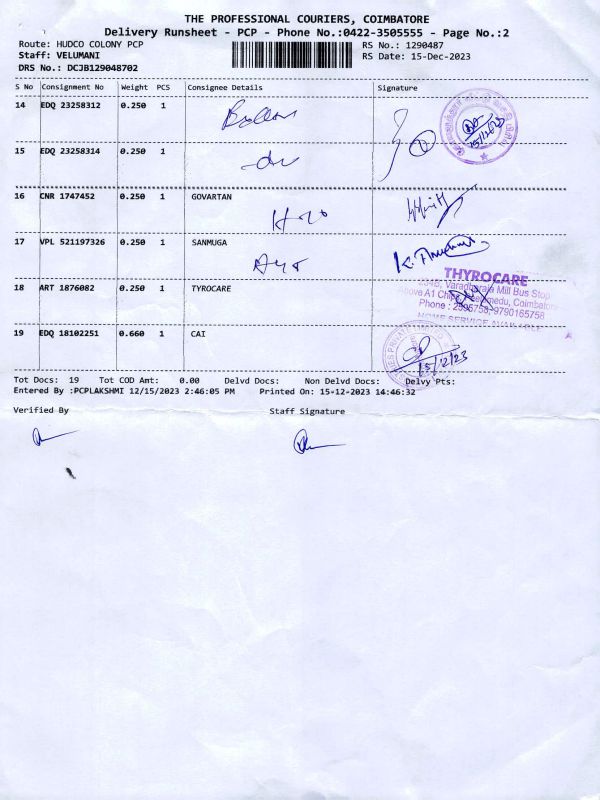 THE PROFESSIONAL COURIERS, COIMBATORE
Delivery Runsheet - PCP - Phone No.:0422-3505555 - Page No.:2
Route: HUDCO COLONY PCP RS No.: 1290487
Staff: VELUMANI RS Date: 15-Dec-2023
DRS No.: DCJB129048702
S No Consignment No Weight PCS Consignee Details Signature
14 EDQ 23258312 0.250 1
15/12/23
15 EDQ 23258314 0.250 1
16 CNR 1747452 0.250 1 GOVARTAN
17 VPL 521197326 0.250 1 SANMUGA
THYROCARE
Varadharaja Mill Bus Stop
18 ART 1876082 0.250 1 TYROCARE
Above A1 Coimbatore
Phone : 9790165758
HOME SERVICE AVAILABLE
19 EDQ 18102251 0.660 1 CAI
15/12/23
Tot Docs: 19 Tot COD Amt: 0.00 Delvd Docs: Non Delvd Docs: Delvy Pts:
Entered By :PCPLAKSHMI 12/15/2023 2:46:05 PM Printed On: 15-12-2023 14:46:32
Verified By Staff Signature